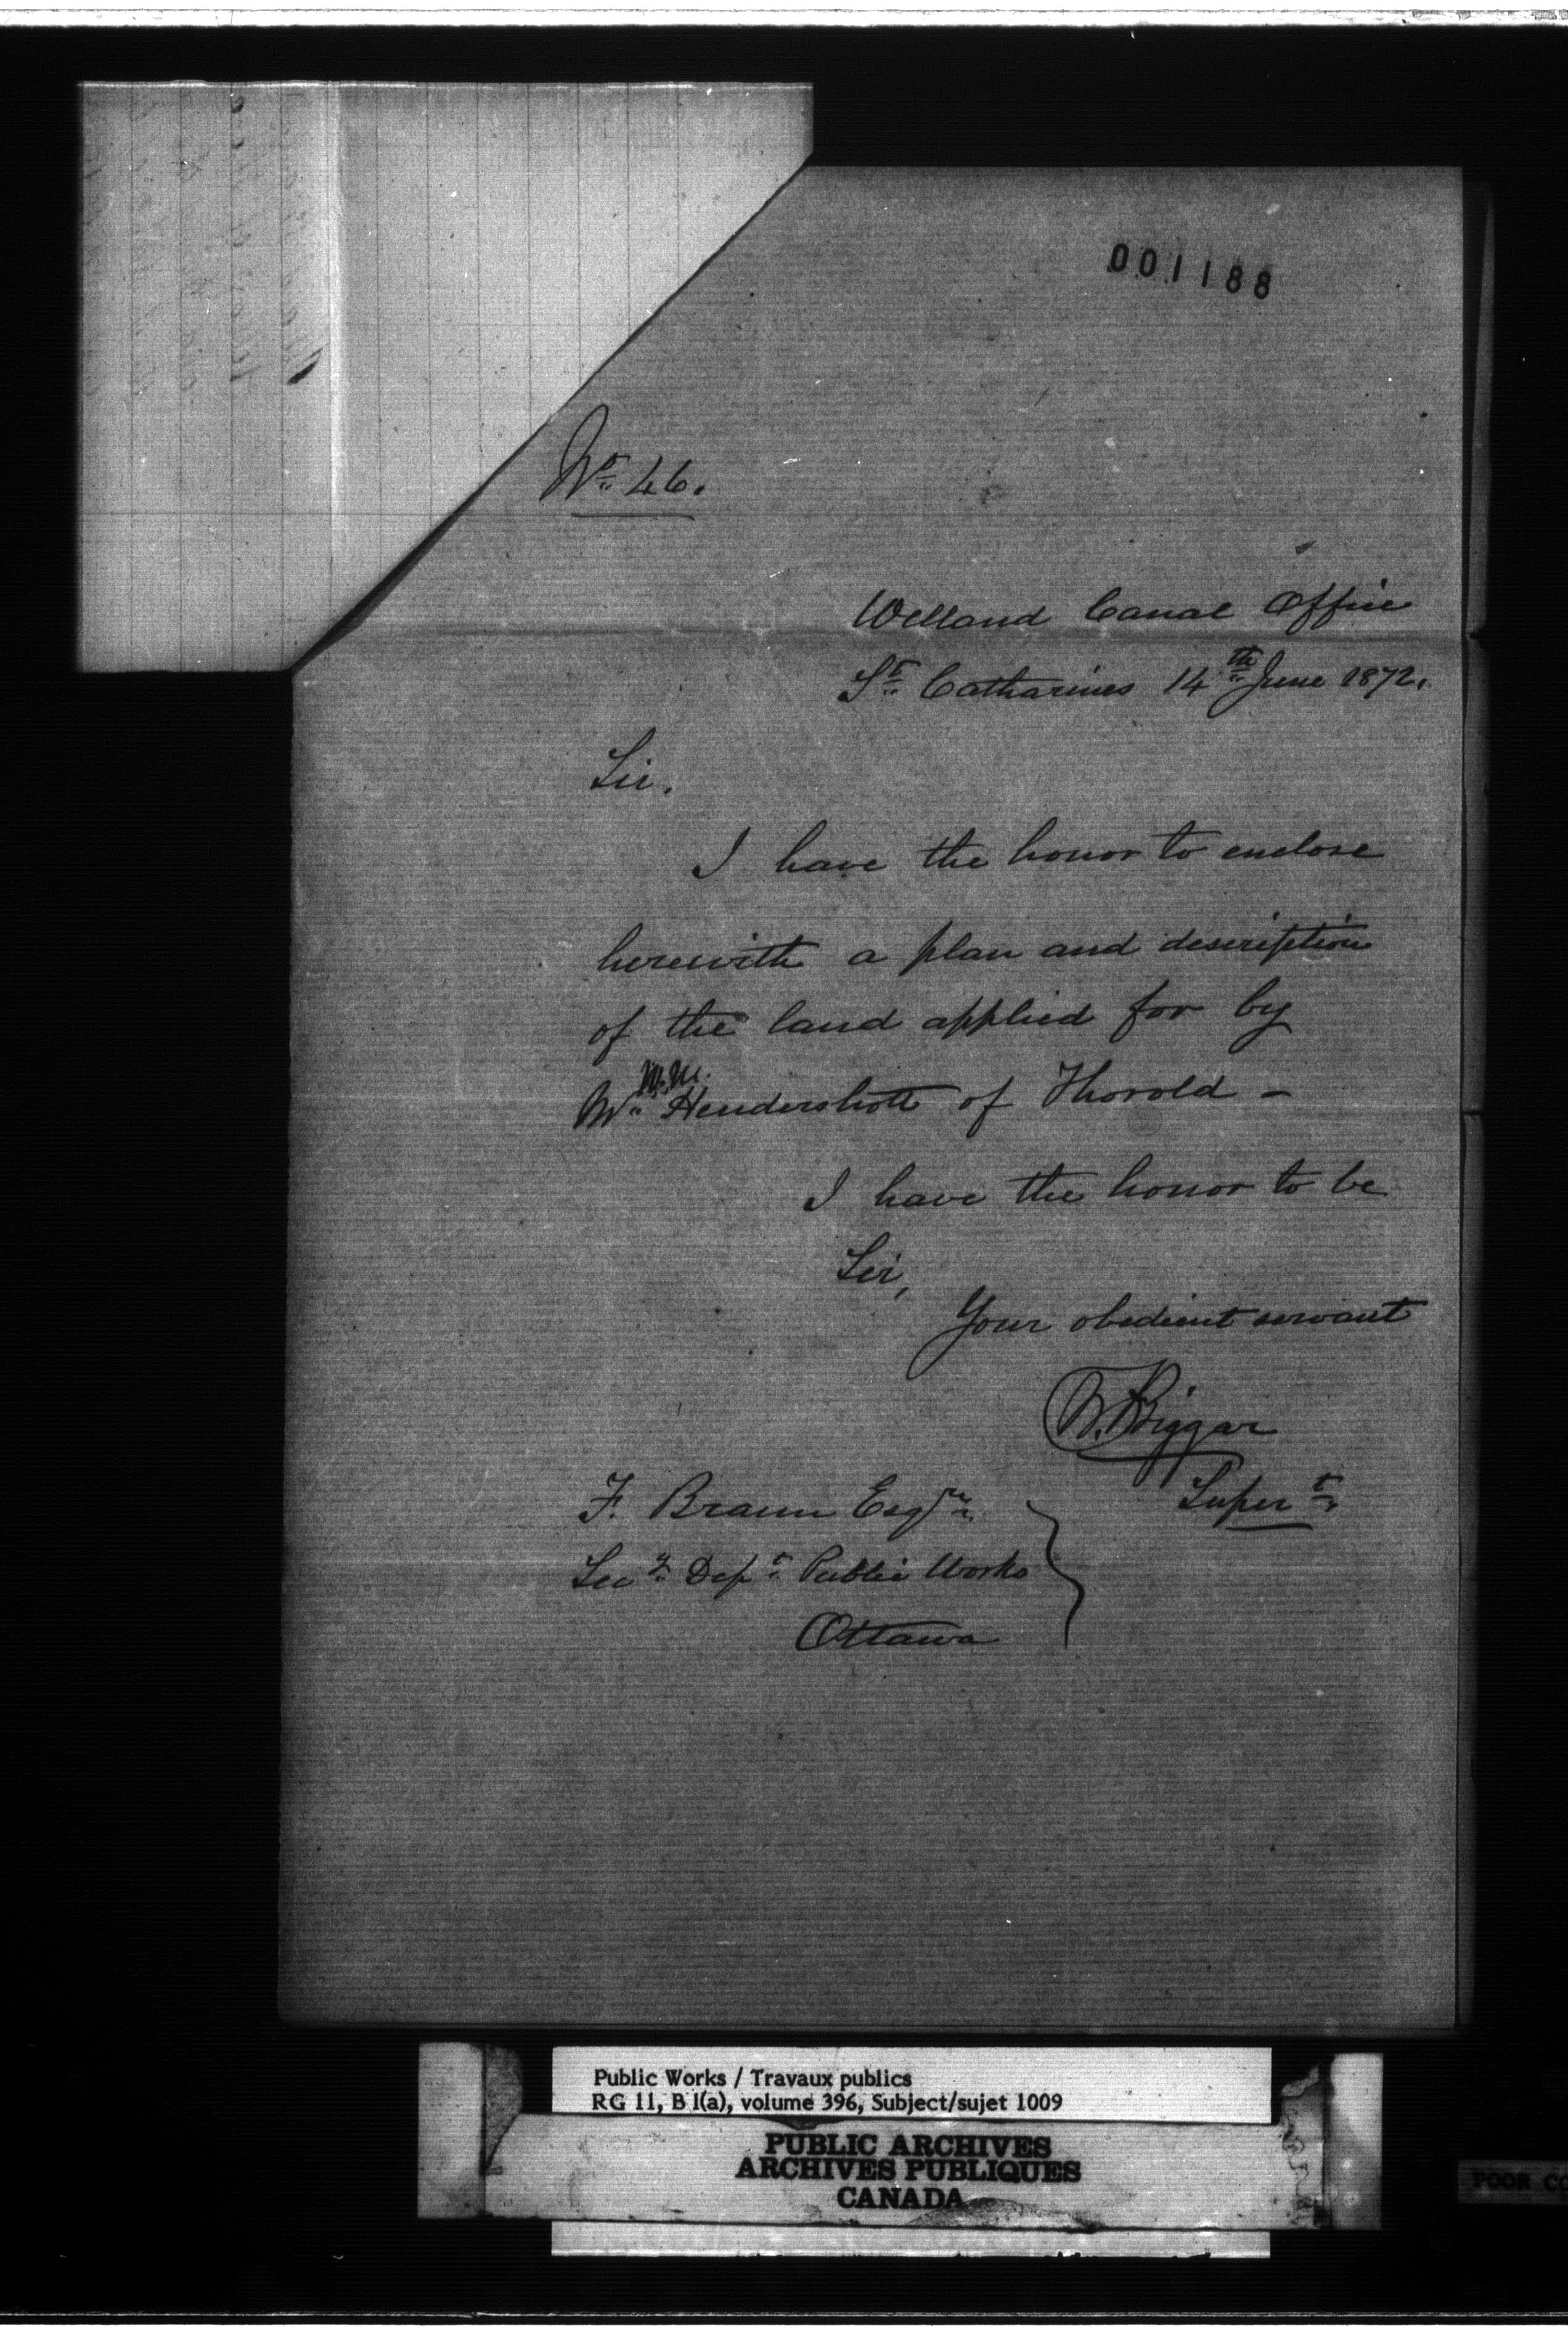 001188
No. 46.
Welland Canal Office
St. Catharines 14th June 1872.
Sir.
I have the honor to enclose
herewith a plan and description
of the land applied for by
W.M.
Mr. Hendershott of Thorold -
I have the honor to be
Sir,
Your obedient servant
Biggar
Supert.
F. Braun Esqre.
Secy. Dept. Public Works
Ottawa
Public Works / Travaux publics
RG 11, B 1(a), volume 396, Subject/sujet 1009
PUBLIC ARCHIVES
ARCHIVES PUBLIQUES
CANADA
POOR CO